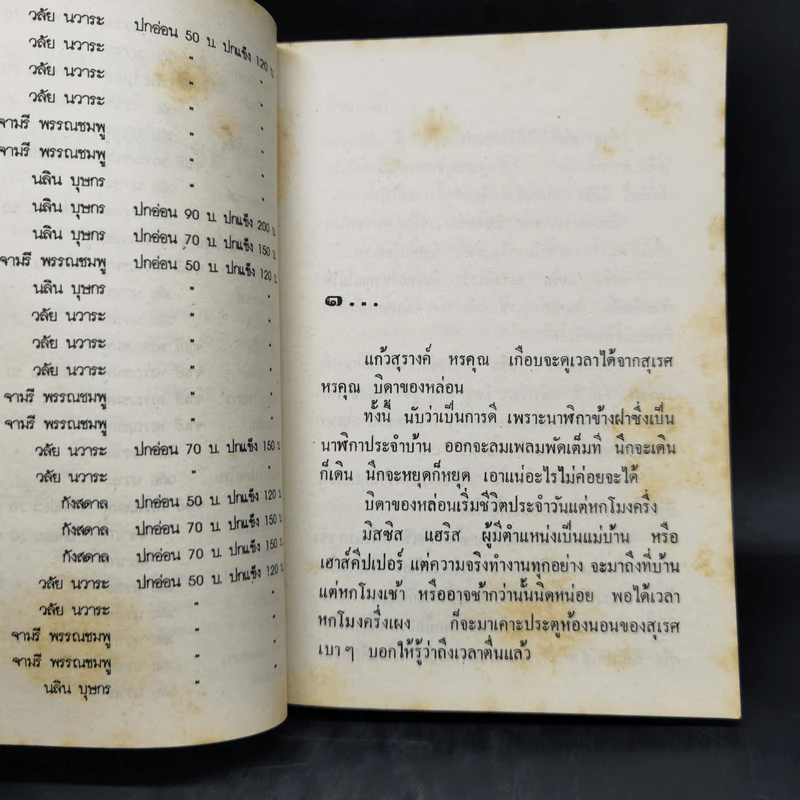 วลัย นวาระ ปกอ่อน 50 บ. ปกแข็ง 120 บ.
วลัย นวาระ " "
วลัย นวาระ " "
วลัย นวาระ " "
จามรี พรรณชมพู " "
จามรี พรรณชมพู " "
นลิน บุษกร " "
นลิน บุษกร ปกอ่อน 90 บ. ปกแข็ง 200 บ.
นลิน บุษกร ปกอ่อน 70 บ. ปกแข็ง 150 บ.
จามรี พรรณชมพู ปกอ่อน 50 บ. ปกแข็ง 120 บ.
นลิน บุษกร " "
วลัย นวาระ " "
วลัย นวาระ " "
วลัย นวาระ " "
จามรี พรรณชมพู " "
จามรี พรรณชมพู " "
วลัย นวาระ ปกอ่อน 70 บ. ปกแข็ง 150 บ.
วลัย นวาระ " "
กังสดาล ปกอ่อน 50 บ. ปกแข็ง 120 บ.
กังสดาล ปกอ่อน 70 บ. ปกแข็ง 150 บ.
กังสดาล ปกอ่อน 70 บ. ปกแข็ง 150 บ.
วลัย นวาระ ปกอ่อน 50 บ. ปกแข็ง 120 บ.
วลัย นวาระ " "
จามรี พรรณชมพู " "
จามรี พรรณชมพู " "
นลิน บุษกร " "
๑...
แก้วสุรางค์ หรคุณ เกือบจะดูเวลาได้จากสุเรศ
หรคุณ บิดาของหล่อน
ทั้งนี้ นับว่าเป็นการดี เพราะนาฬิกาข้างฝาซึ่งเป็น
นาฬิกาประจำบ้าน ออกจะลมเพลมพัดเต็มที นึกจะเดิน
ก็เดิน นึกจะหยุดก็หยุด เอาแน่อะไรไม่ค่อยจะได้
บิดาของหล่อนเริ่มชีวิตประจำวันแต่หกโมงครึ่ง
มิสซิส แฮริส ผู้มีตำแหน่งเป็นแม่บ้าน หรือ
เฮาส์คีปเปอร์ แต่ความจริงทำงานทุกอย่าง จะมาถึงที่บ้าน
แต่หกโมงเช้า หรืออาจช้ากว่านั้นนิดหน่อย พอได้เวลา
หกโมงครึ่งเผง ก็จะมาเคาะประตูห้องนอนของสุเรศ
เบาๆ บอกให้รู้ว่าถึงเวลาตื่นแล้ว